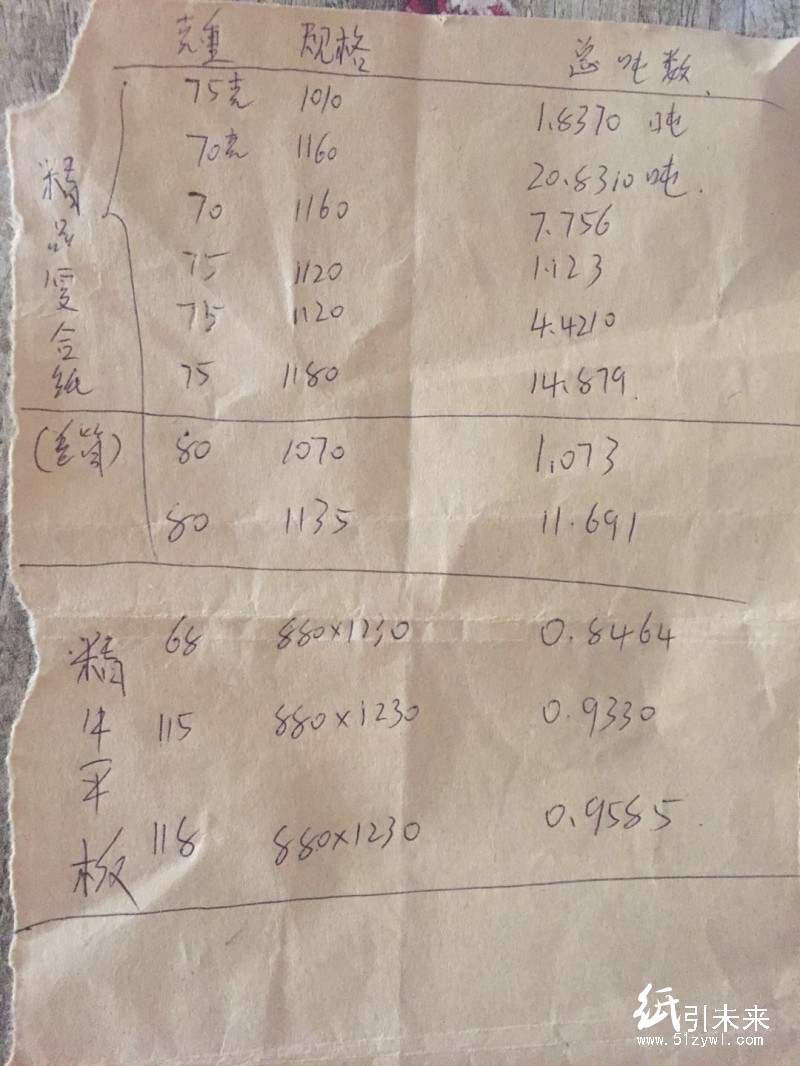 克重 规格 总吨数
精品复合纸
75克 1010 1.8370 吨
70克 1160 20.8310 吨.
70 1160 7.756
75 1120 1.123
75 1120 4.4210
75 1180 14.879.
80 1070 1.073
80 1135 11.691
精牛平板
68 880×1230 0.8464
115 880×1230 0.9330
118 880×1230 0.9585
纸引未来
www.51zywl.com